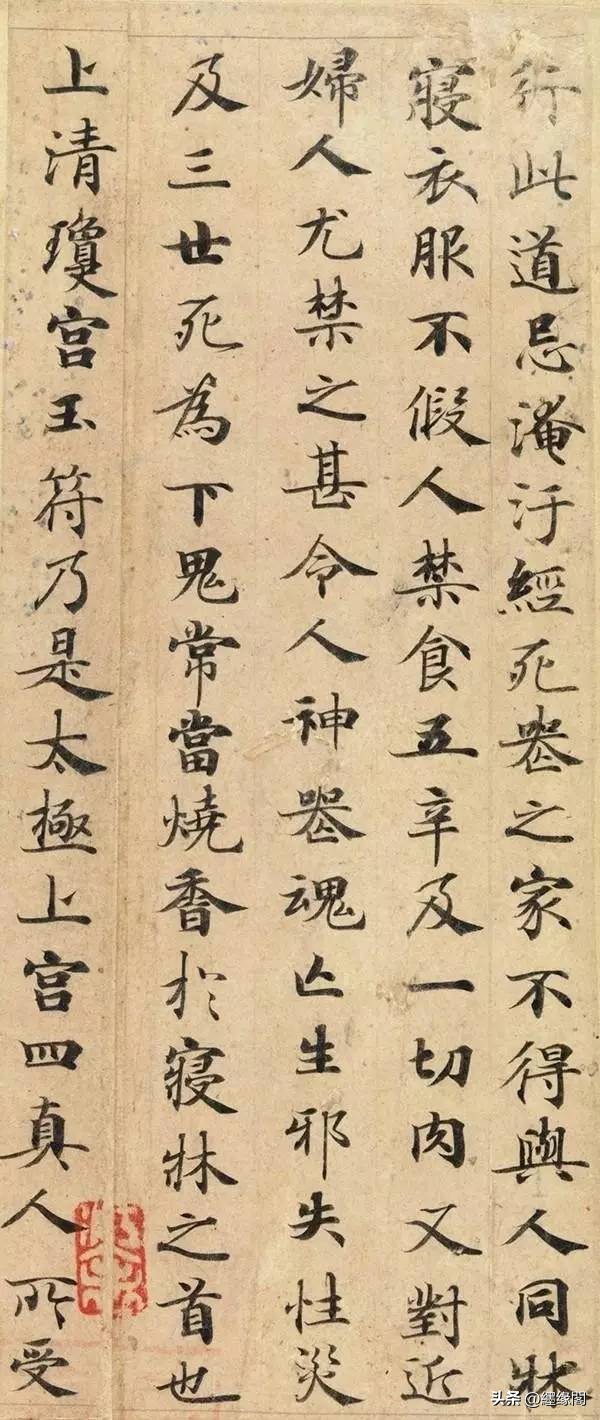 行此道忌淹汙經死喪之家不得與人同牀
寢衣服不假人禁食五辛及一切肉又對近
婦人尤禁之甚令人神喪魂亡生邪失性災
及三世死為下鬼常當燒香於寢牀之首也
上清瓊宮玉符乃是太極上宮四真人所受
头条 @經缘閣